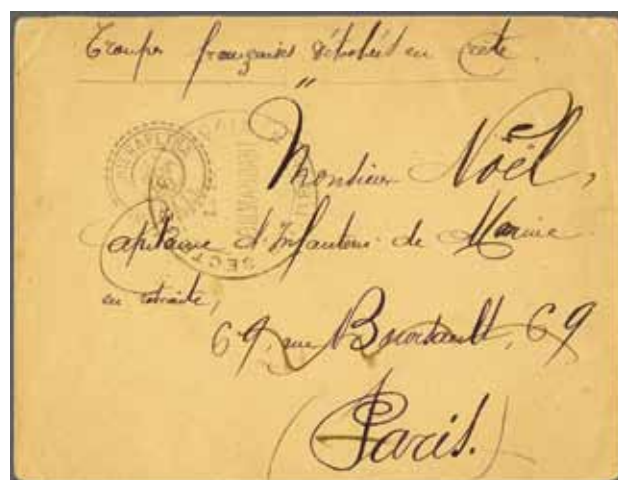 Troupes françaises détachées en Crète
"
Monsieur Noël,
Capitaine d'Infanterie de Marine
en retraite,
69, rue Boursault, 69
(Paris.)
HIERAPETRA
SECT